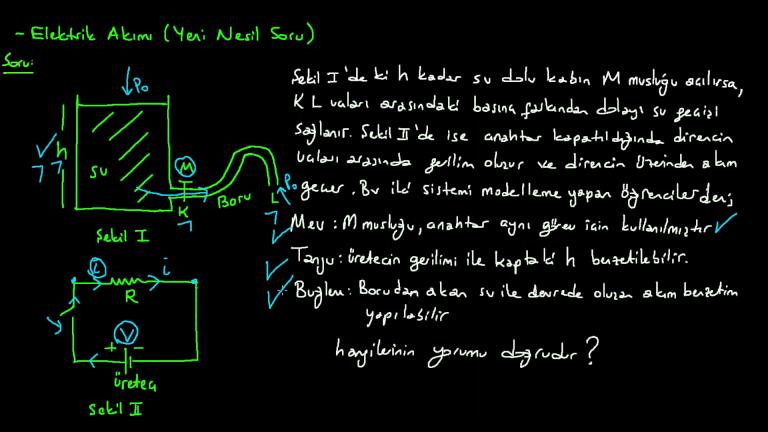 - Elektrik Akımı (Yeni Nesil Soru)
Soru:
Po
h
su
M
K
Boru
L
Po
Şekil I
i
i
R
V
+ -
üreteç
Şekil II
Şekil I'deki h kadar su dolu kabın M musluğu açılırsa,
K L uçları arasındaki basınç farkından dolayı su geçişi
sağlanır. Şekil II'de ise anahtar kapatıldığında direncin
uçları arasında gerilim oluşur ve direncin üzerinden akım
geçer. Bu iki sistemi modelleme yapan öğrencilerden;
Mev : M musluğu, anahtar aynı görev için kullanılmıştır
Tanju : üretecin gerilimi ile kaptaki h benzetilebilir.
Buğlem : Borudan akan su ile devrede oluşan akım benzetim
yapılabilir
hangilerinin yorumu doğrudur ?